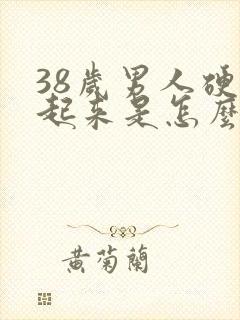 38歲男人硬
起來是怎麼
黃菊蘭